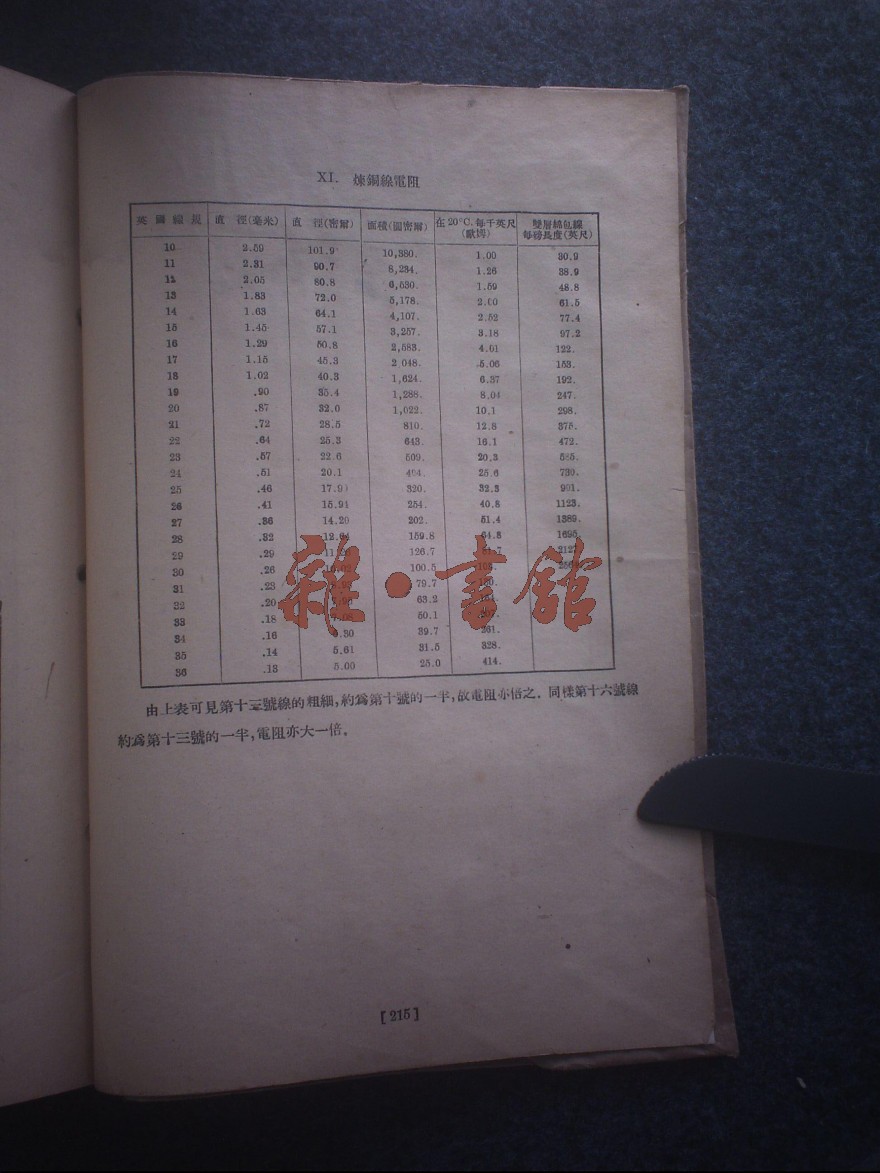 XI. 煉銅線電阻
英國線規 直徑(毫米) 直徑(密爾) 面積(圓密爾) 在20°C.每千英尺(歐姆) 雙層綿包線每磅長度(英尺)
10 2.59 101.9 10,380. 1.00 30.9
11 2.31 90.7 8,234. 1.26 38.9
12 2.05 80.8 6,530. 1.59 48.8
13 1.83 72.0 5,178. 2.00 61.5
14 1.63 64.1 4,107. 2.52 77.4
15 1.45 57.1 3,257. 3.18 97.2
16 1.29 50.8 2,583. 4.01 122.
17 1.15 45.3 2,048. 5.06 153.
18 1.02 40.3 1,624. 6.37 192.
19 .90 35.4 1,288. 8.04 247.
20 .87 32.0 1,022. 10.1 298.
21 .72 28.5 810. 12.8 375.
22 .64 25.3 643. 16.1 472.
23 .57 22.6 509. 20.3 585.
24 .51 20.1 404. 25.6 730.
25 .46 17.90 320. 32.3 901.
26 .41 15.94 254. 40.8 1123.
27 .36 14.20 202. 51.4 1389.
28 .32 12.64 159.8 64.8 1695.
29 .29 126.7
30 .26 100.5
31 .23 79.7
32 .20 63.2
33 .18 50.1
34 .16 39.7 261.
35 .14 5.61 31.5 328.
36 .13 5.00 25.0 414.
雜·書館
由上表可見第十三號線的粗細,約爲第十號的一半,故電阻亦倍之. 同樣第十六號線
約爲第十三號的一半,電阻亦大一倍.
[215]